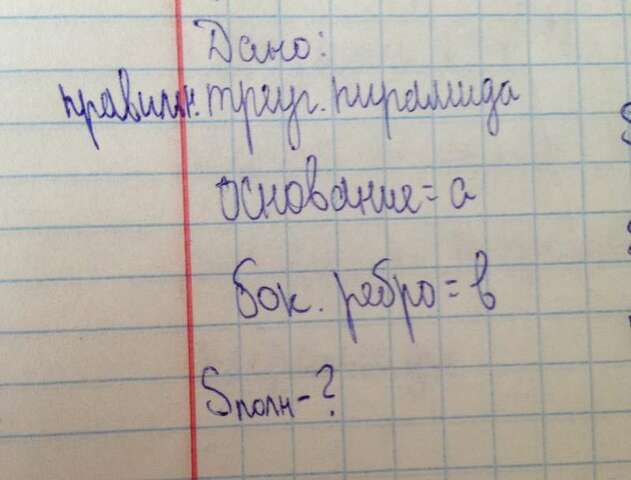 Дано:
правильн. треуг. пирамида
основание = а
бок. ребро = в
Sполн - ?